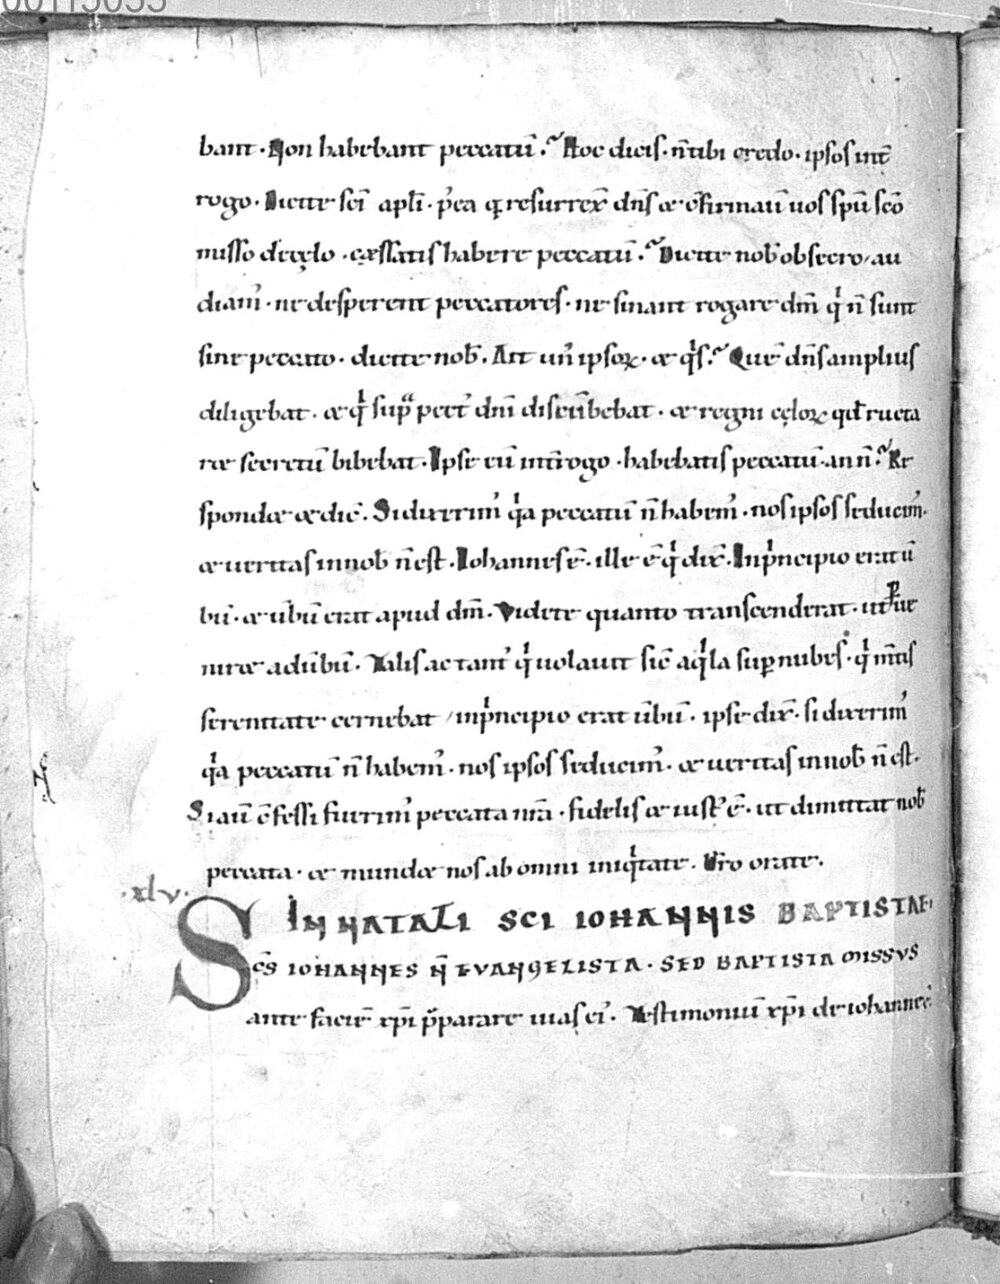 bant · Non habebant peccatū . Hoc dicis · n̄ tibi credo · ipsos int̄
rogo . Dicite sc̄i apl̄i · p̓ea q̄ resurrex̄ dn̄s & c̄firmauit̄ uos sp̄u sc̄o
misso de cęlo · cæssatis habere peccatū . Dicite nob̄ obsecro / au
diam᾽ · ne desperent peccatores · ne sinant rogare dm̄ qi n̄ sunt
sine peccato · dicite nob̄ . Att un᾽ ipsoꝝ · & qis . Quē dn̄s amplius
diligebat · & qi sup̄ pect᾽ dn̄i discūbebat · & regni cęloꝝ qd̄ ructa
r& secretū bibebat . Ipse eū int̄rogo · habebatis peccatū · an n̄ . Re
spond& & dic̄ . Si dixerim᾽ qia peccatū n̄ habem᾽ · nos ipsos seducim᾽ ·
& ueritas in nob̄ n̄ est . Iohannes ē · ille ē qi dix̄ . In pincipio erat ū
bū · & ūbū erat apud dm̄ . Videte quanto transcenderat · ut pue
nir& ad ūbū . Talis ac tant᾽ qi uolauit sic̄ aqila suꝑ nubes · qi m̄tis
serenitate cernebat / in pincipio erat ūbū · ipse dix̄ · si dixerim᾽
qia peccatū n̄ habem᾽ · nos ipsos seducim᾽ · & ueritas in nob̄ n̄ est .
Si aū c̄fessi fuerim᾽ peccata nr̄a · fidelis & iust᾽ ē · ut dimittat nob̄
peccata · & mund& nos ab omni iniqitate . orate .
· xlv ·
IN NATALI SCI IOHANNIS BAPTISTAE ·
SCS IOHANNES N̄ EVANGELISTA · SED BAPTISTA MISSVS
ante faciē xp̄i p̄parare uias ei᾽ . Testimoniū xp̄i de iohanne ē